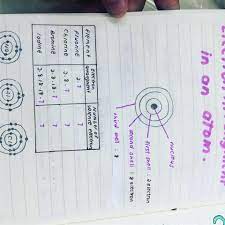 in an atom.
nucleus
first shell : 2 electron
second shell : 8 electron
third shell : 8
Element
Electron
Number of
valence electrons
Fluorine
2.7
7
Chlorine
2.8.7
7
Bromine
2.8.18.7
7
Iodine
2.8.18.18.7
7